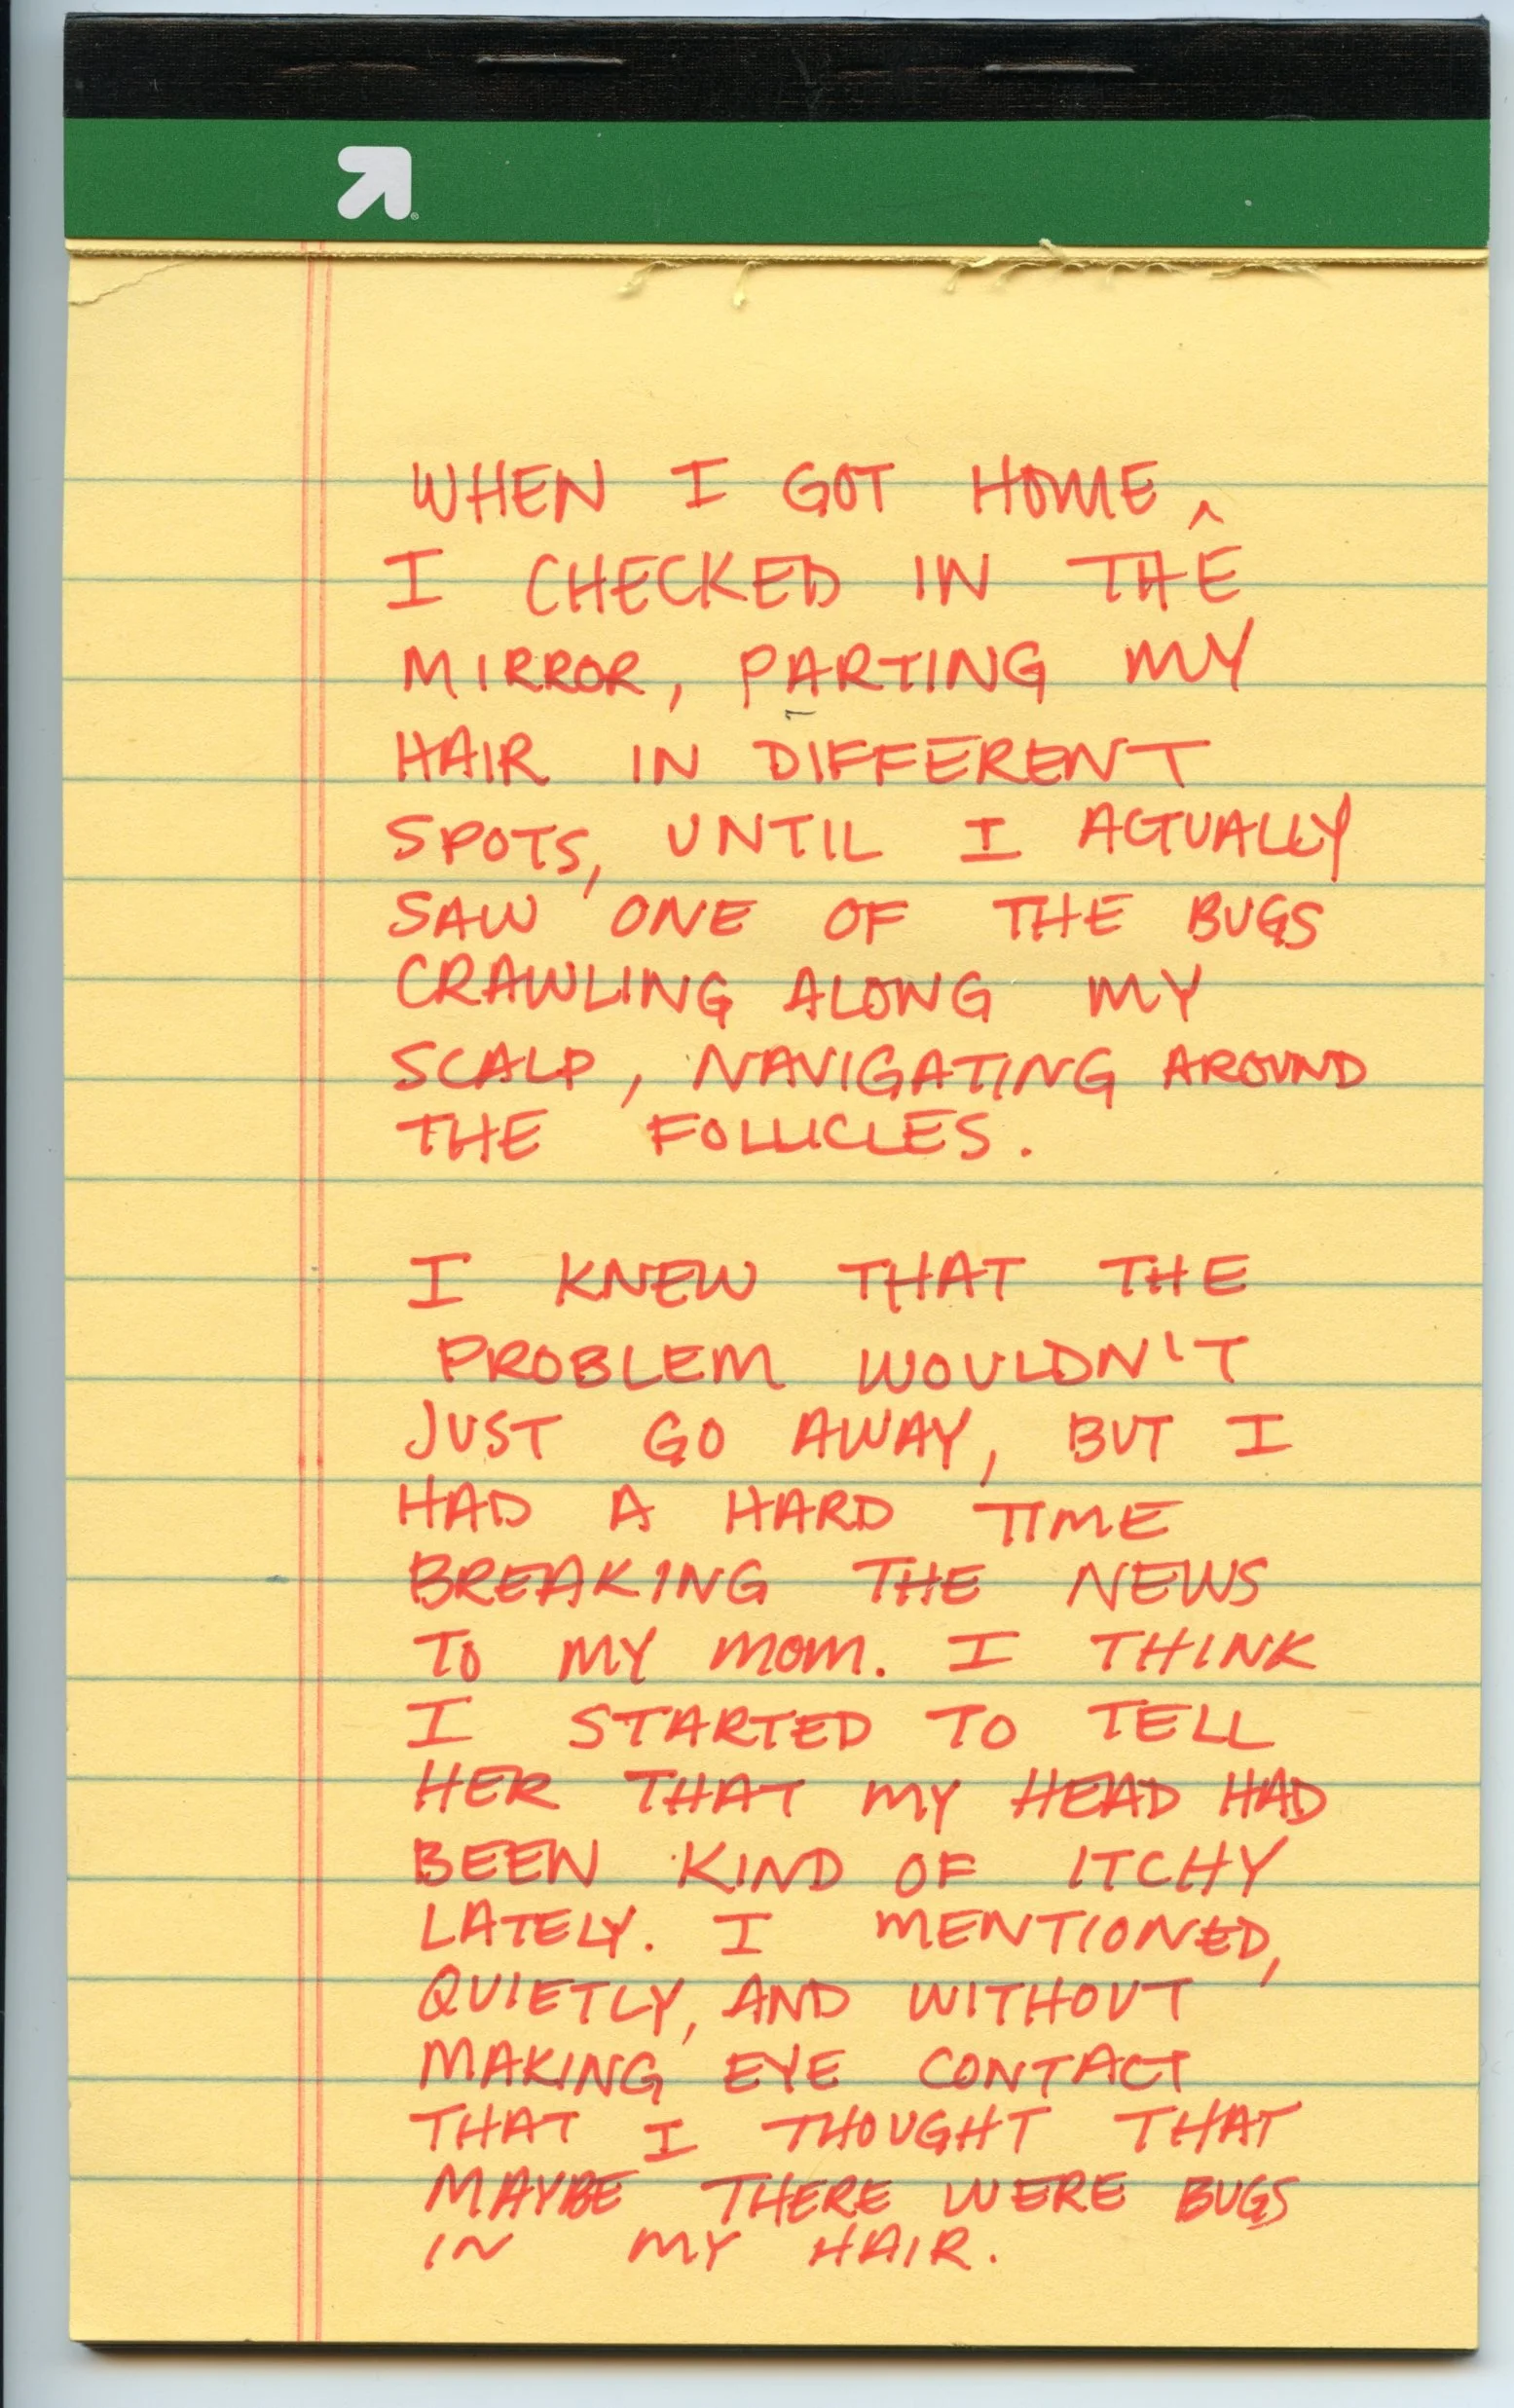 WHEN I GOT HOME ^
I CHECKED IN THE
MIRROR, PARTING MY
HAIR IN DIFFERENT
SPOTS, UNTIL I ACTUALLY
SAW ONE OF THE BUGS
CRAWLING ALONG MY
SCALP, NAVIGATING AROUND
THE FOLLICLES.
I KNEW THAT THE
PROBLEM WOULDN'T
JUST GO AWAY, BUT I
HAD A HARD TIME
BREAKING THE NEWS
TO MY MOM. I THINK
I STARTED TO TELL
HER THAT MY HEAD HAD
BEEN KIND OF ITCHY
LATELY. I MENTIONED,
QUIETLY, AND WITHOUT
MAKING EYE CONTACT
THAT I THOUGHT THAT
MAYBE THERE WERE BUGS
IN MY HAIR.